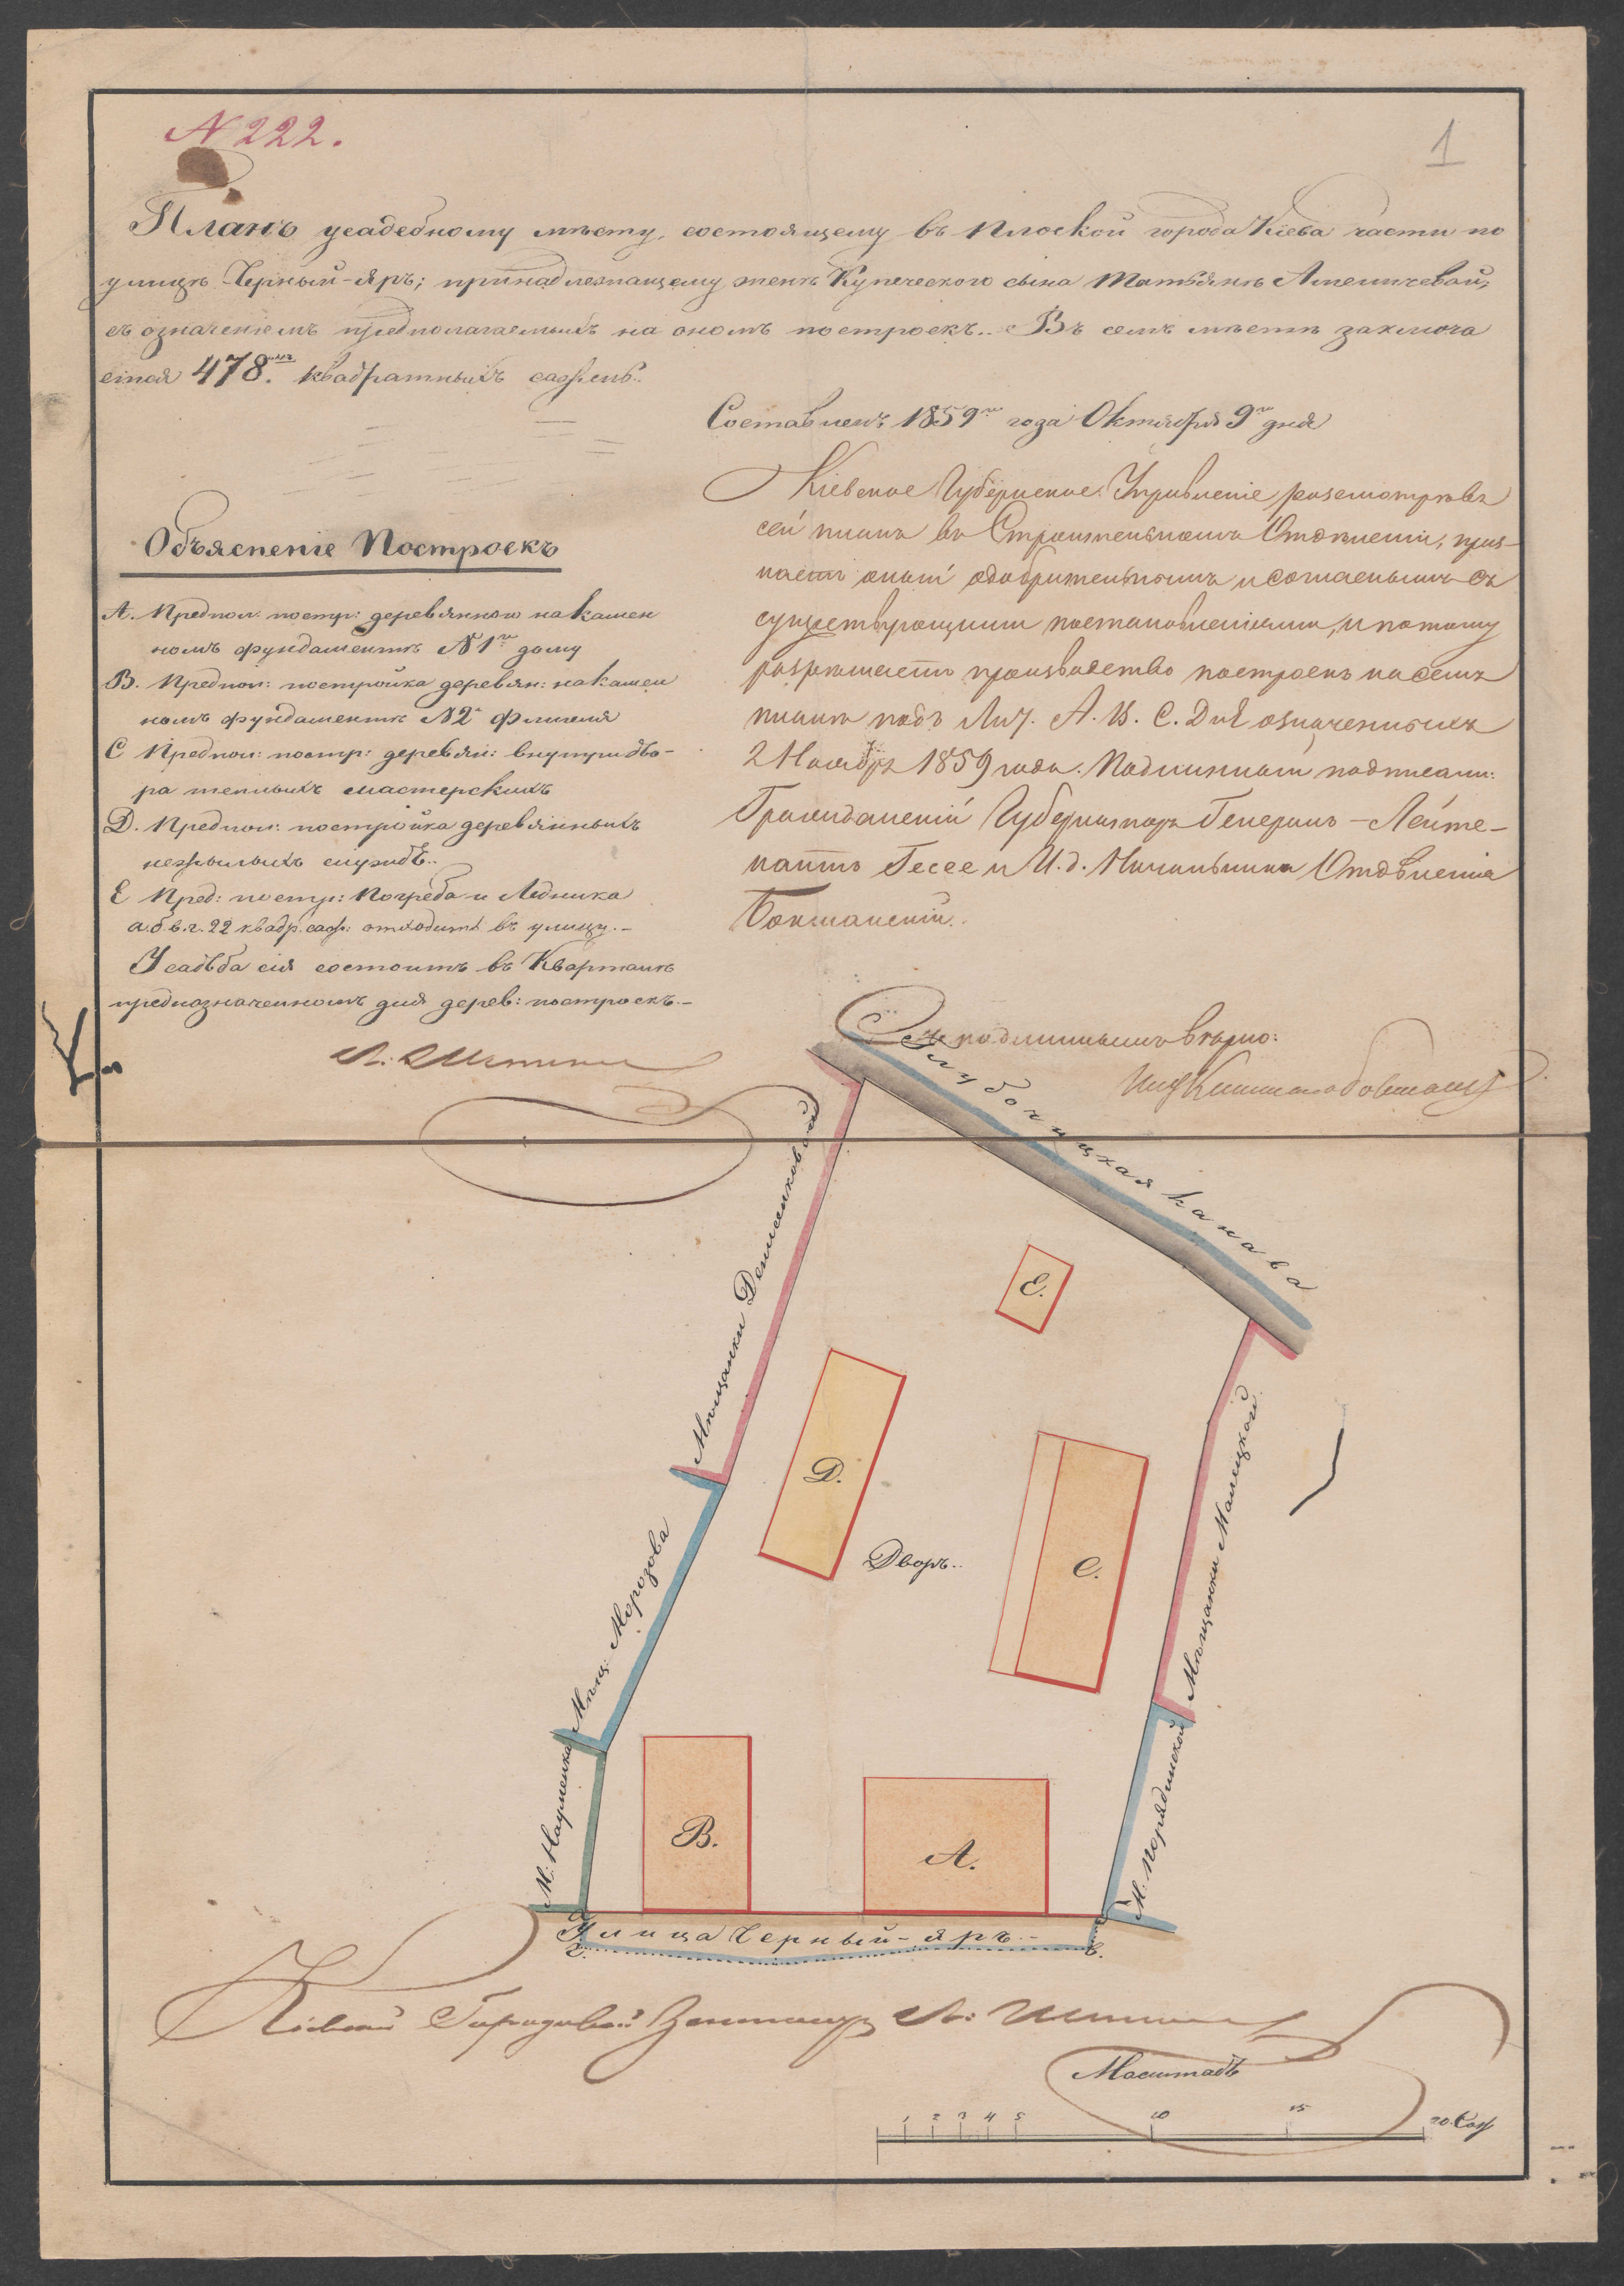 N 222.
1
Планъ усадебному мѣсту, состоящему въ Плоской города Кіева части по
улицѣ Черный-яръ; принадлежащему женѣ Купеческого сына Татьянѣ
съ означеніемъ предполагаемыхъ на ономъ построекъ.. Въ семъ мѣстѣ заключа
ется 478.мь квадратныхъ сажень..
Составленъ 1859го года Октября 9го дня
Объясненіе Построекъ
А. Предпол: постр: деревянного на камен
номъ фундаментѣ N 1го дому
В. Предпол: постройка деревян: на камен
номъ фундаментѣ N 2й флигеля
С Предпол: постр: деревян: внутри дво-
ра теплыхъ мастерскихъ
D. Предпол: постройка деревянныхъ
нежилыхъ службъ..
Е Пред: постр: Погреба и Ледника
а.б.в.г. 22 квадр. саж: отходитъ въ улицу.-
Усадьба сія состоитъ въ Кварталѣ
предназначенномъ для дерев: построекъ.-
Кіевское Губернское Управленіе разсмотрѣвъ
сей планъ въ Строительномъ Отдѣленіи, приз-
наетъ оный одобрительнымъ и согласнымъ съ
существующими постановленіями, и потому
разрѣшаетъ производство построекъ на семъ
планѣ подъ Лит. А. В. С. D и Е означенныхъ
2 Ноября 1859 года. Подлинный подписали:
Гражданскій Губернаторъ Генералъ-Лейте-
нантъ Гессе и И.д. Начальника Отдѣленія
Съ подлиннымъ вѣрно:
Глубочицкая канава
Мѣщанки
Мѣщ: Морозова
М: Науменка
Мѣщанки Малицкой
М.
Е.
D.
С.
Дворъ..
В.
А.
а
б
Улица Черный-яръ.-
г.
в.
Кіевскій Городовой Землемѣръ
Масштабъ
1 2 3 4 5 10 15 20 Саж